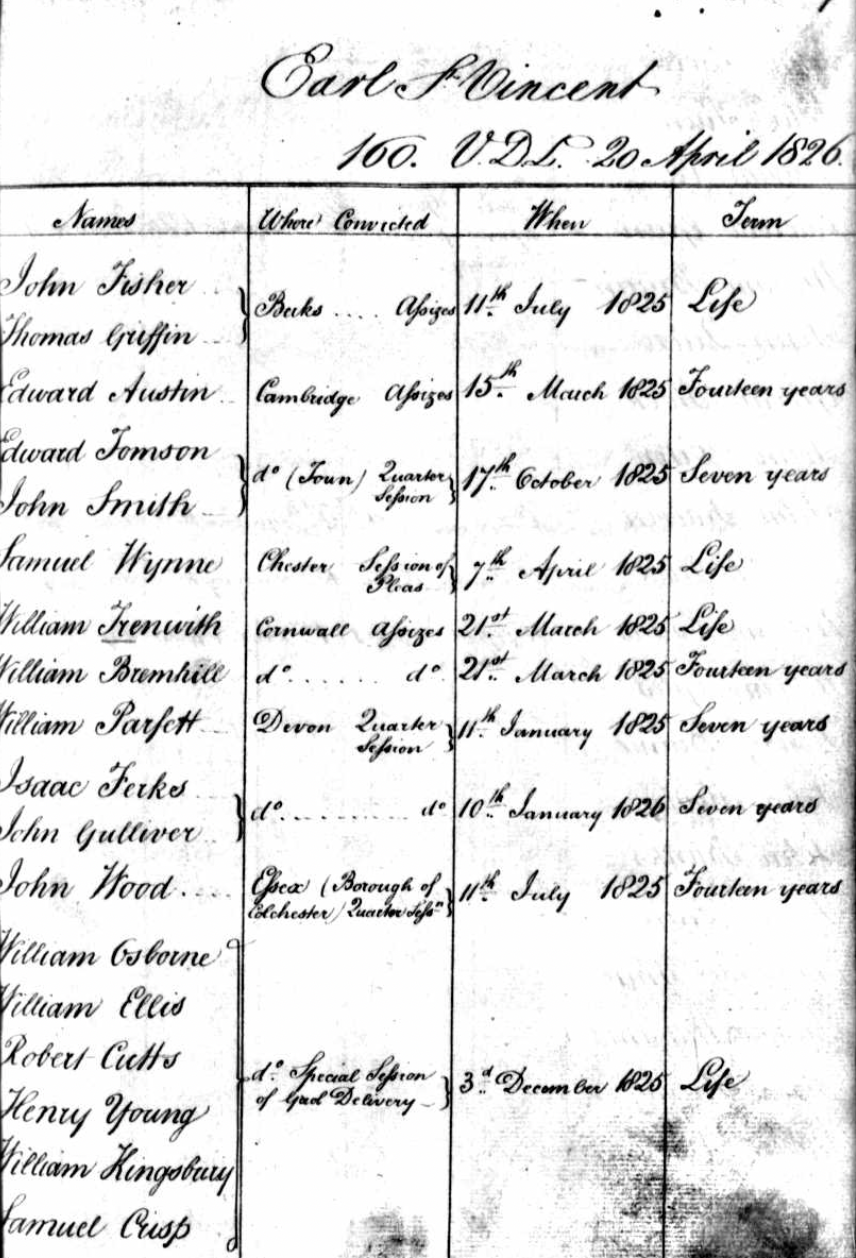 Earl St Vincent
160. V.D.L. 20 April 1826.
Names Where Convicted When Term
John Fisher
Berks .... Assizes 11th July 1825 Life
Thomas Griffin
Edward Austin Cambridge Assizes 15th March 1825 Fourteen years
Edward Tomson
do (Town) Quarter Session 17th October 1825 Seven years
John Smith
Samuel Wynne Chester Session of Pleas 7th April 1825 Life
William Trenwith Cornwall Assizes 21st March 1825 Life
William Bremhill do ...... do 21st March 1825 Fourteen years
William Parfett Devon Quarter Session 11th January 1825 Seven years
Isaac Ferks
do ......... do 10th January 1826 Seven years
John Gulliver
John Wood .... Essex (Borough of Colchester) Quarter Sessn 11th July 1825 Fourteen years
William Osborne
William Ellis
Robert Cutts
do Special Session of Gaol Delivery 3d December 1825 Life
Henry Young
William Kingsbury
Samuel Crisp